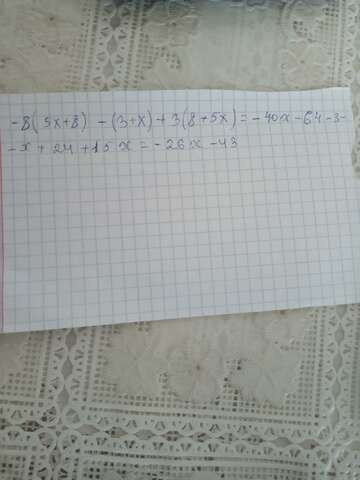 -8(5x+8) -(3+x)+3(8+5x)=-40x-64-3-
-x+24+15x=-26x-43